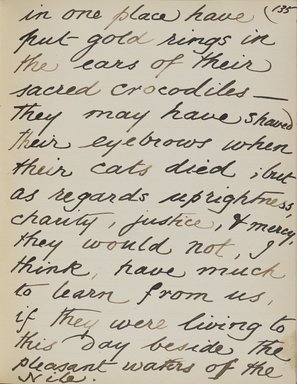 in one place have (135
put gold rings in
the ears of their
sacred crocodiles —
they may have shaved
their eyebrows when
their cats died ; but
as regards uprightness,
charity, justice, & mercy,
they would not, I
think, have much
to learn from us,
if they were living to
this day beside the
pleasant waters of the
Nile.